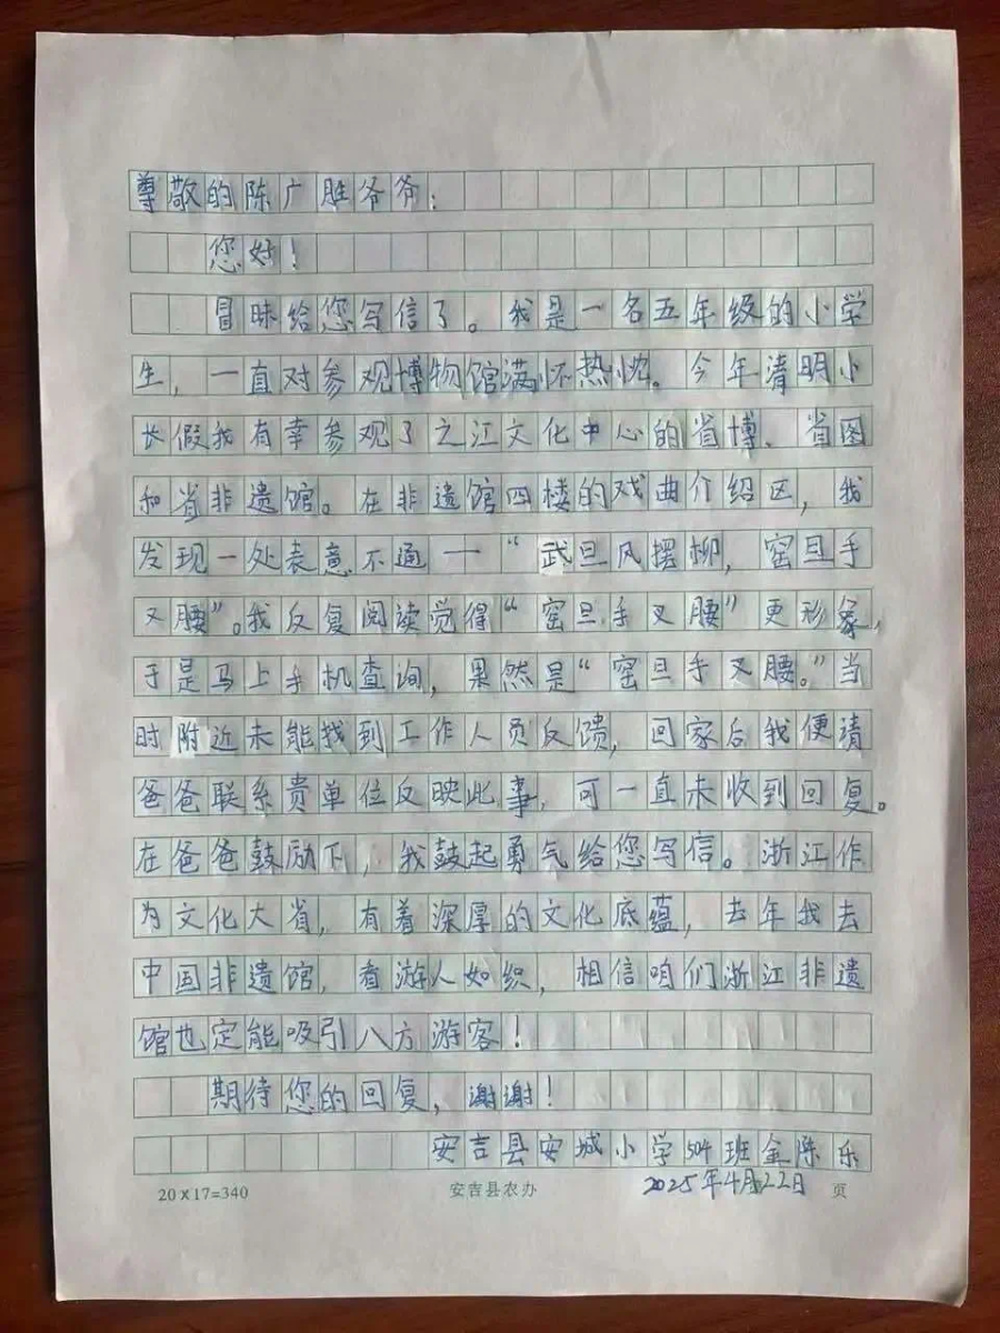 尊敬的陈广胜爷爷：
您好！
冒昧给您写信了。我是一名五年级的小学
生，一直对参观博物馆满怀热忱。今年清明小
长假我有幸参观了之江文化中心的省博、省图
和省非遗馆。在非遗馆四楼的戏曲介绍区，我
发现一处表意不通——“武旦风摆柳，窑旦手
又腰”。我反复阅读觉得“窑旦手叉腰”更形象，
于是马上手机查询，果然是“窑旦手叉腰。”当
时附近未能找到工作人员反馈，回家后我便请
爸爸联系贵单位反映此事，可一直未收到回复。
在爸爸鼓励下，我鼓起勇气给您写信。浙江作
为文化大省，有着深厚的文化底蕴，去年我去
中国非遗馆，看游人如织，相信咱们浙江非遗
馆也定能吸引八方游客！
期待您的回复，谢谢！
安吉县安城小学504班金陈乐
20×17=340 安吉县农办 2025年4月22日 页